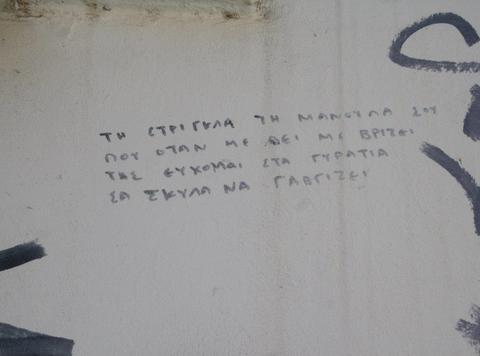 ΤΗ ΣΤΡΙΓΚΛΑ ΤΗ ΜΑΝΟΥΛΑ ΣΟΥ
ΠΟΥ ΟΤΑΝ ΜΕ ΔΕΙ ΜΕ ΒΡΙΖΕΙ
ΤΗΣ ΕΥΧΟΜΑΙ ΣΤΑ ΓΥΡΑΤΙΑ
ΣΑ ΣΚΥΛΑ ΝΑ ΓΑΒΓΙΖΕΙ